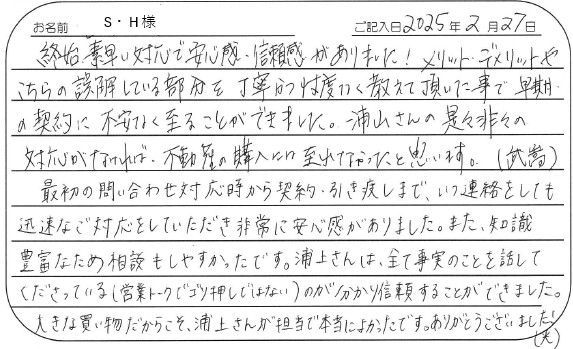 お名前 S・H様 ご記入日2025年2月27日
終始、素早い対応で安心感・信頼感がありました！メリット・デメリットや
こちらの誤解している部分を丁寧かつ忖度なく教えて頂いた事で早期
の契約に不安なく至ることができました。浦山さんの是々非々の
対応がなければ、不動産の購入には至れなかったと思います。
最初の問い合わせ対応時から契約・引き戻しまで、いつ連絡をしても
迅速なご対応をしていただき非常に安心感がありました。また、知識
豊富なため相談もしやすかったです。浦上さんは、全て事実のことを話して
くださっている(営業トークでゴリ押しではない)のが分かり信頼することができました。
大きな買い物だからこそ、浦上さんが担当で本当によかったです。ありがとうございました！